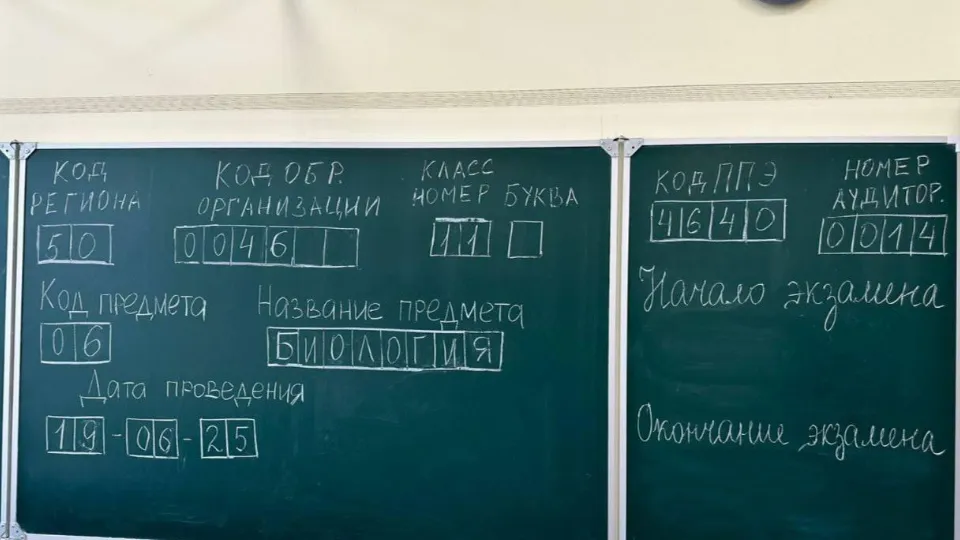 КОД
РЕГИОНА
50
КОД ОБР.
ОРГАНИЗАЦИИ
0046
КЛАСС
НОМЕР БУКВА
11
Код предмета
06
Название предмета
БИОЛОГИЯ
Дата проведения
19-06-25
КОД ППЭ
4640
НОМЕР
АУДИТОР.
0014
Начало экзамена
Окончание экзамена